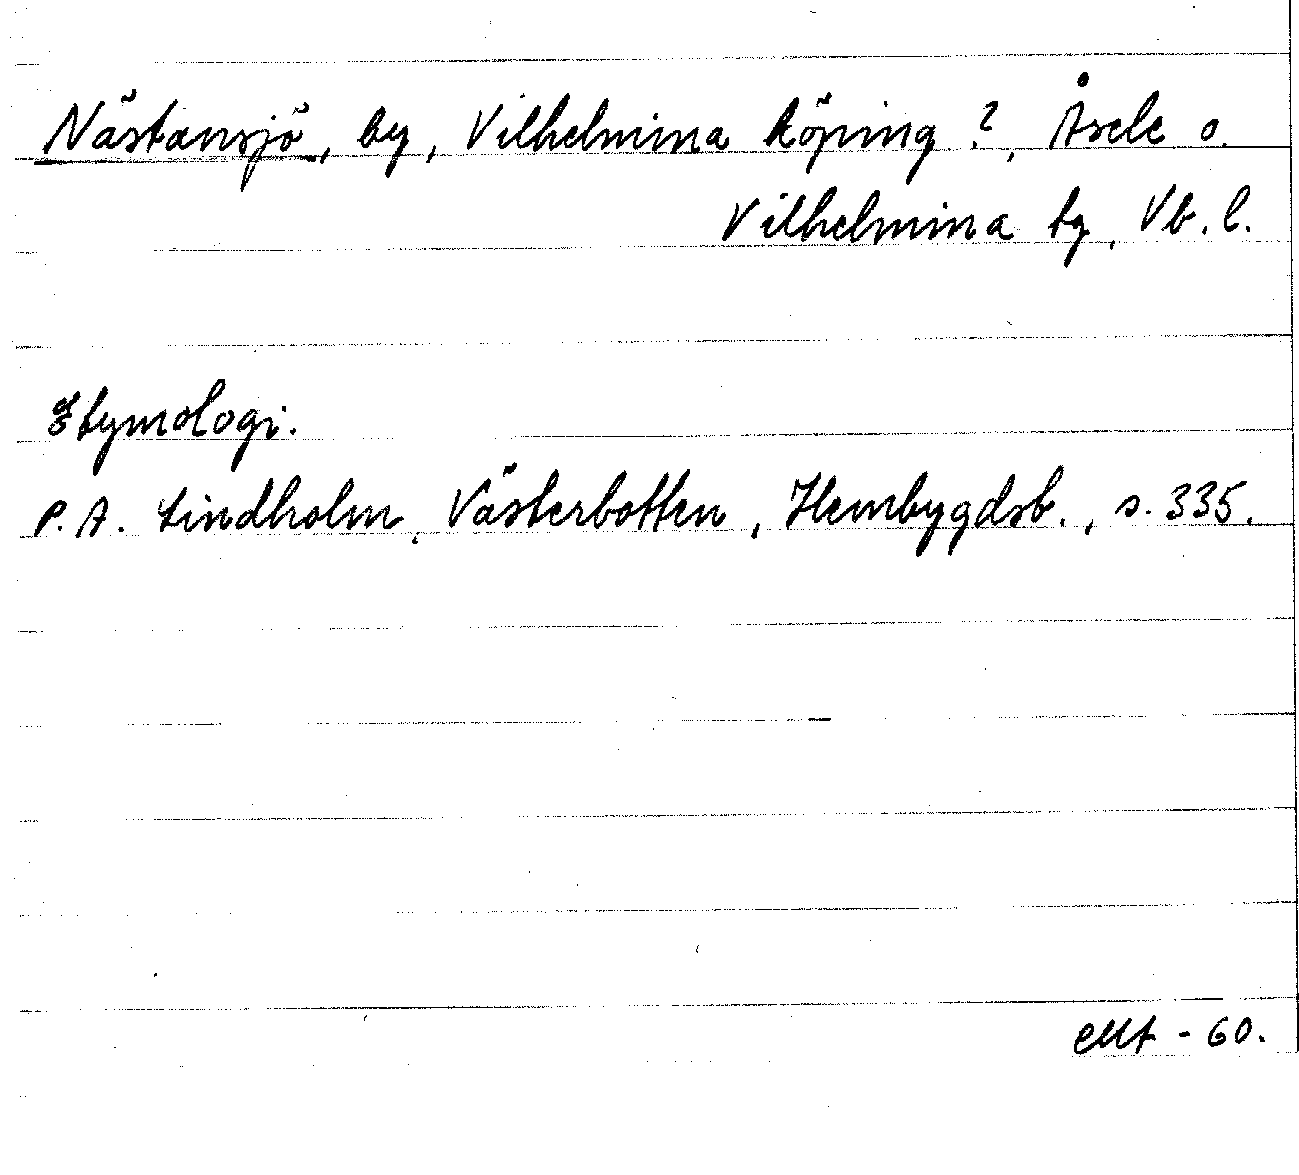 Nästansjö, by, Vilhelmina köping ?, Åsele o.
Vilhelmina tg, Vb. l.
Etymologi.
P. A. Lindholm, Västerbotten, Hembygdsb., s. 335.
- 60.